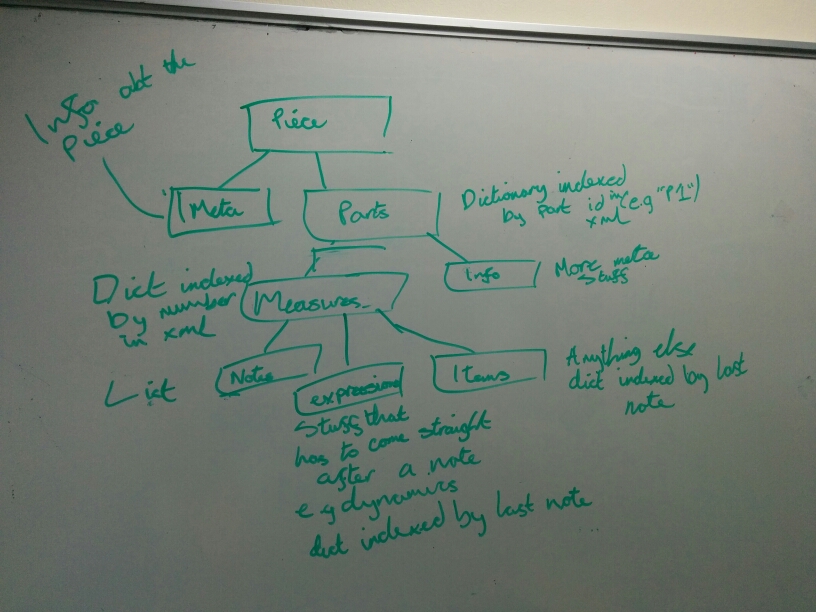 Info abt the
Piece
Piece
Meta
Parts
Dictionary indexed
by part id in (e.g "P1")
xml
Info
More meta
stuff
Dict indexed
by number
in xml
Measures
List
Notes
expressions
Items
Anything else
dict indexed by last
note
Stuff that
has to come straight
after a note
e.g dynamics
dict indexed by last note